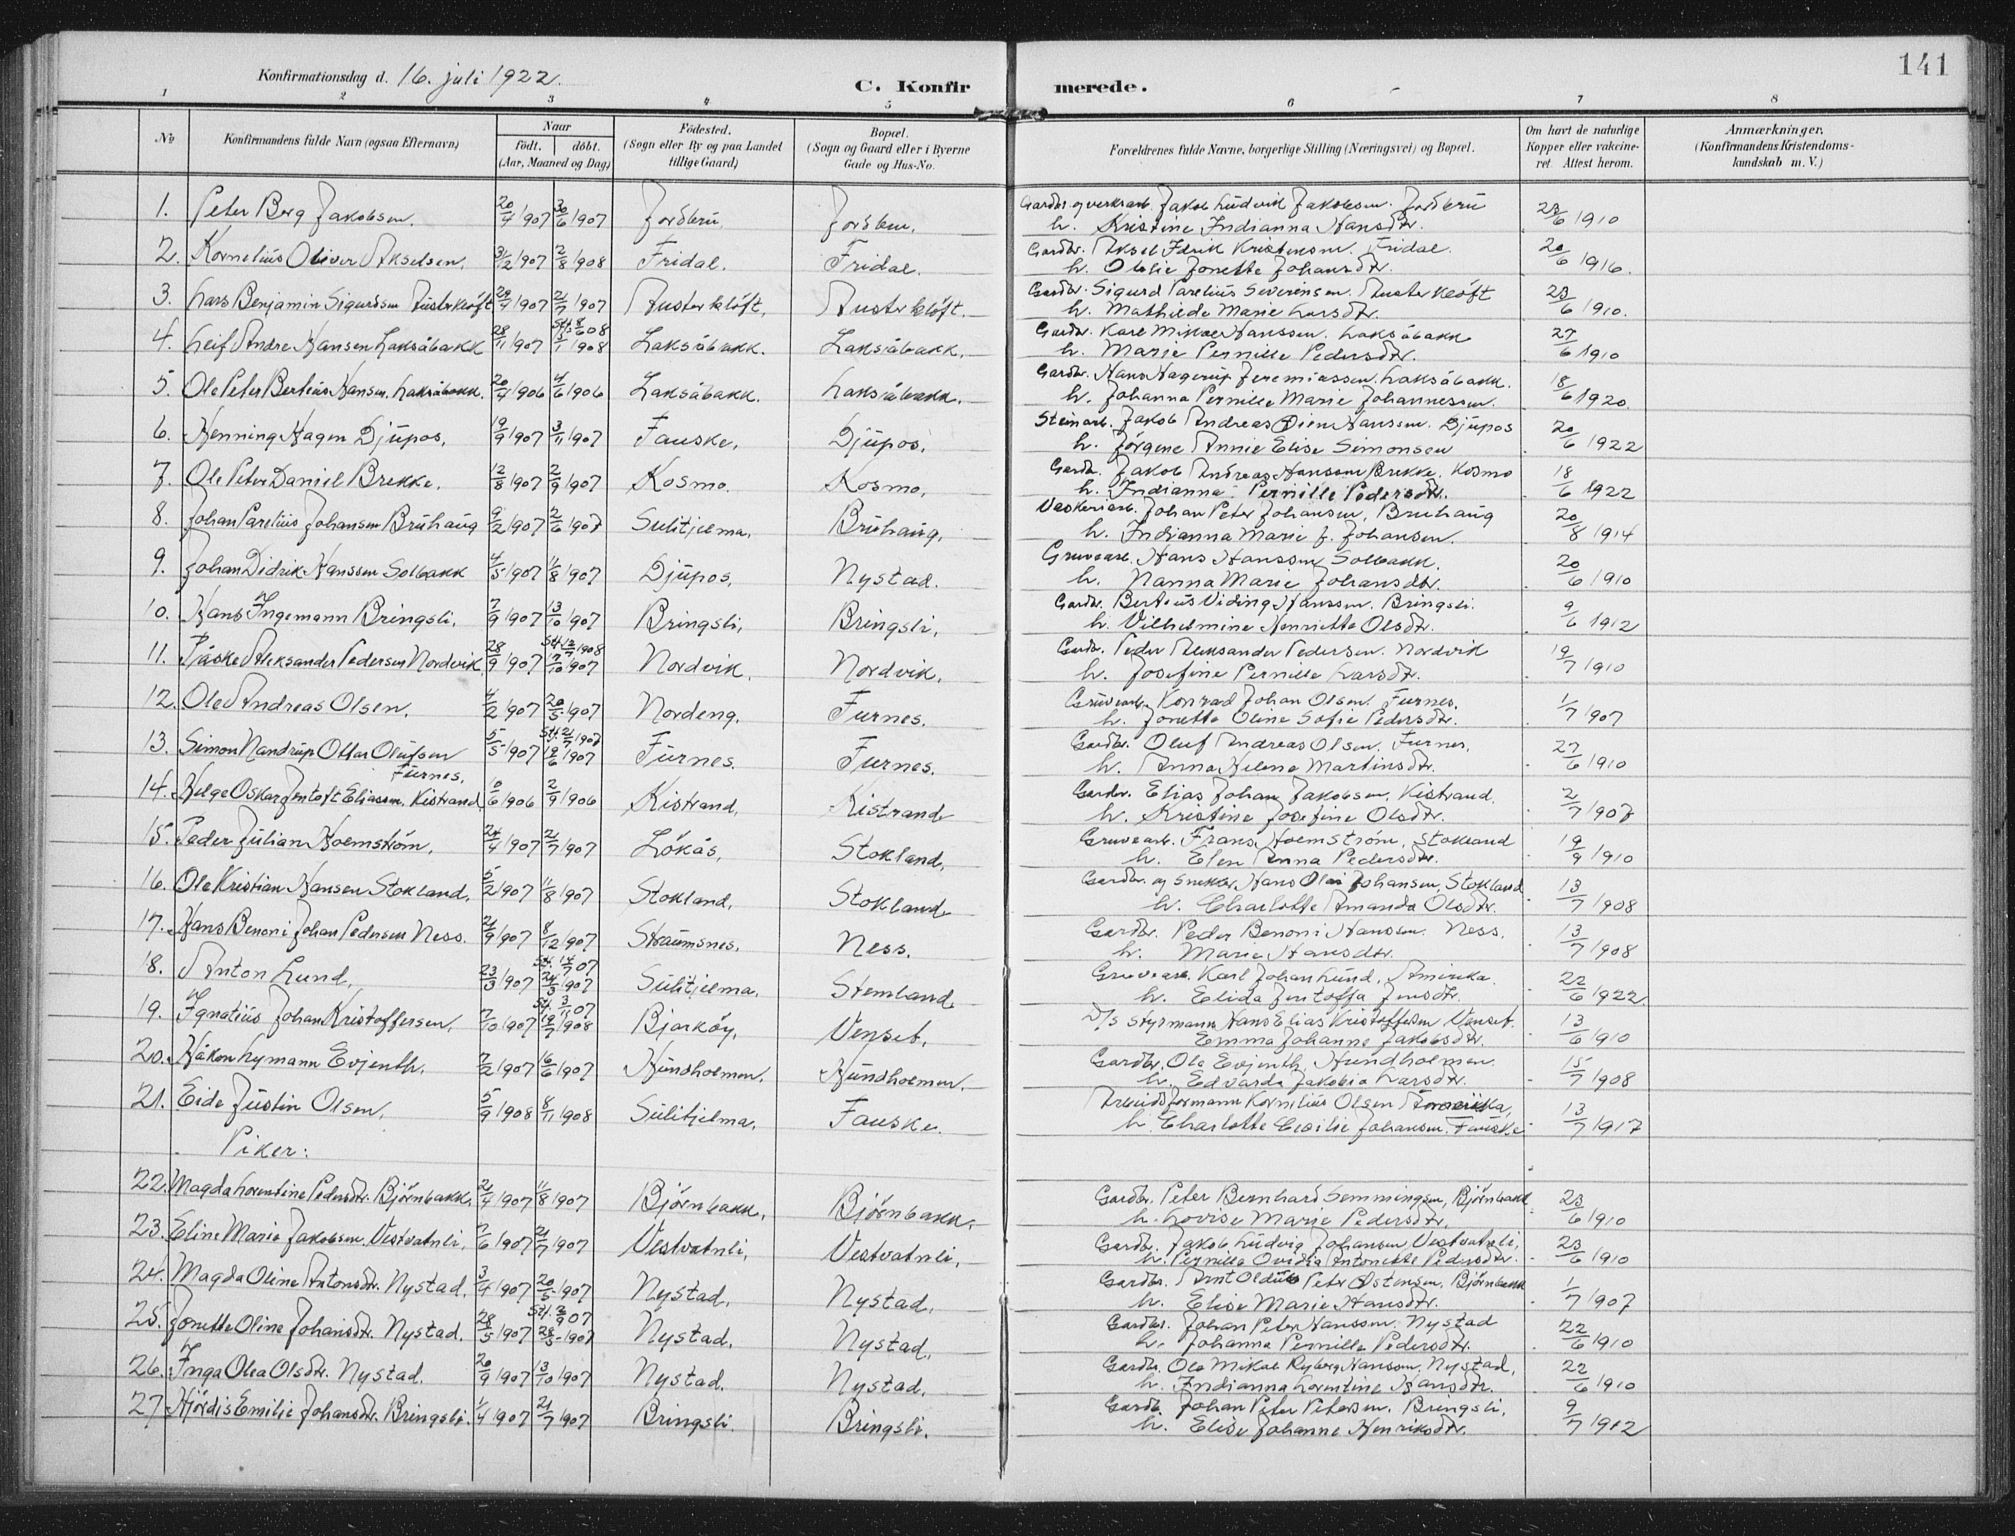 141
Konfirmationsdag d. 16. juli 1922.
C. Konfirmerede.
1 2 3 4 5 6 7 8
No
Konfirmandens fulde Navn (ogsaa Efternavn)
Naar
født. døbt.
(Aar, Maaned og Dag)
Fødested.
(Sogn eller By og paa Landet
tillige Gaard)
Bopæl.
(Sogn og Gaard eller i Byerne
Gade og Hus-No.
Forældrenes fulde Navne, borgerlige Stilling (Næringsvei) og Bopæl.
Om havt de naturlige
Kopper eller vakcine-
ret. Attest herom.
Anmærkninger.
(Konfirmandens Kristendoms-
kundskab m. V.)
1. Peter Berg Jakobsen. 20/4 1907 30/6 1907 Jordbru. Jordbru. Gardbr. og verksarb. Jakob Ludvik Jakobsen. Jordbru
h. Kristine Indianna Hansdtr. 23/6 1910
2. Kornelius Oliver Akselsen. 31/12 1907 2/8 1908 Fridal. Fridal. Gardbr. Aksel Fdrik Kristensen. Fridal.
h. Olelie Jonette Johansdtr. 20/6 1916.
3. Lars Benjamin Sigurdsen Austerkløft 29/4 1907 21/7 1907 Austerkløft. Austerkløft. Gardbr. Sigurd Parelius Severinsen. Austerkløft
h. Mathilde Marie Larsdtr. 23/6 1910.
4. Leif Andre Hansen Laksåbakk 28/11 1907 1/1 1908 Laksåbakk. Laksåbakk. Gardbr. Karl Mikael Hanssen. Laksåbakk
h. Marie Pernille Pedersdtr. 27/6 1910
5. Ole Peter Berteus Hansen. Laksåbakk. 20/4 1906 4/6 1906 Laksåbakk. Laksåbakk. Gardbr. Hans Hagerup Jeremiassen. Laksåbakk.
h. Johanna Pernille Marie Johannessen. 18/6 1920.
6. Henning Hagen Djupos. 19/9 1907 3/11 1907 Fauske. Djupos. Steinarb. Jakob Andreas Dien Hanssen. Djupos
h. Jørgene Annie Elise Simonsen 20/6 1922
7. Ole Peter Daniel Brekke. 12/8 1907 2/9 1907 Kosmo. Kosmo. Gardb. Jakob Andreas Hanssen Brekke, Kosmo
h. Indianna Pernille Pedersdtr. 18/6 1922
8. Johan Parelius Johansen Bruhaug 9/2 1907 2/6 1907 Sulitjelma. Bruhaug. Vaskeriarb. Johan Peter Johansen, Bruhaug
h. Indianna Marie J. Johansen. 20/8 1914
9. Johan Didrik Hanssen Solbakk 4/5 1907 11/8 1907 Djupos. Nystad. Gruvearb. Hans Hanssen Solbakk.
h. Nanna Marie Johansdtr. 20/6 1910
10. Hans Ingemann Bringsli. 7/9 1907 13/10 1907 Bringsli. Bringsli. Gardbr. Berteus Viding Hanssen. Bringsli.
h. Vilhelmine Henriette Olsdtr. 9/6 1912
11. Påske Aleksander Pedersen Nordvik 28/9 1907 1907 Nordvik. Nordvik. Gardb. Peder Aleksander Pedersen. Nordvik
h. Josefine Pernille Larsdtr. 19/7 1910
12. Ole Andreas Olsen. 4/2 1907 20/5 1907 Nordeng. Furnes. Gruvearb. Konrad Johan Olsen. Furnes.
h. Jonette Oline Sofie Pedersdtr. 1/7 1907
13. Simon Nandrup Ottar Olufsen
Furnes. 5/5 1907 19/6 1907 Furnes. Furnes. Gardbr. Oluf Andreas Olsen. Furnes.
h. Anna Helene Martinsdtr. 27/6 1910
14. Helge Oskar Jentoft Eliassen. Kistrand 1906 2/9 1906 Kistrand. Kistrand Gardbr. Elias Johan Jakobsen. Kistrand.
h. Kristine Josefine Olsdtr. 2/7 1907
15. Peder Julian Holmstrøm. 24/4 1907 21/7 1907 Løkås. Stokland. Gruvearb. Frans Holmstrøm, Stokland
h. Elen Anna Pedersdtr. 19/9 1910
16. Ole Kristian Hansen Stokland. 5/2 1907 11/8 1907 Stokland. Stokland Gardbr. og snekker Hans Olai Johansen, Stokland
h. Charlotte Amanda Olsdtr. 13/7 1908
17. Hans Benoni Johan Pedersen Ness. 21/9 1907 8/12 1907 Straumsnes. Ness. Gardbr. Peder Benoni Hanssen. Ness.
h. Marie Hansdtr. 13/7 1908
18. Anton Lund. 23/3 1907 24/3 1907 Sulitjelma. Stemland Gruvearb. Karl Johan Lund. Amerika.
h. Elida Jentoffa Jensdtr. 22/6 1922
19. Ignatius Johan Kristoffersen. 7/10 1907 19/7 1908 Bjarkøy. Venset. D/s Styrmann Hans Elias Kristoffersen Venset.
Emma Johanne Jakobsdtr. 13/6 1910
20. Håkon Lymann Evjenth. 7/2 1907 16/6 1907 Hundholmen. Hundholmen. Gardbr. Ole Evjenth, Hundholmen.
h. Edvarda Jakobia Larsdtr. 15/7 1908
21. Eide Justin Olsen. 5/9 1908 8/11 1908 Sulitjelma. Fauske. Arbeidsformann Kornelius Olsen Amerika,
h. Charlotte Cecilie Johansen. Fauske 13/7 1917
Piker:
22. Magda Lorentine Pedersdtr. Bjørnbakk. 21/4 1907 11/8 1907 Bjørnbakk. Bjørnbakk. Gardbr. Peter Bernhard Semmingsen, Bjørnbakk
h. Lovise Marie Pedersdtr. 23/6 1910
23. Eline Marie Jakobsen Vestvatnli. 7/6 1907 21/7 1907 Vestvatnli. Vestvatnli. Gardbr. Jakob Ludvig Johansen Vestvatnli.
h. Pernille Ovidia Antonette Pedersdtr. 23/6 1910
24. Magda Oline Antonsdtr. Nystad. 3/4 1907 20/5 1907 Nystad. Nystad. Gardbr. Arnt Oldus Peter Østensen, Bjørnbakk
h. Elise Marie Hansdtr. 1/7 1907
25. Jonette Oline Johansdtr. Nystad. 28/5 1907 1907 Nystad. Nystad. Gardbr. Johan Peter Hanssen. Nystad
h. Johanna Pernille Pedersdtr. 22/6 1910
26. Inga Olea Olsdtr. Nystad. 26/9 1907 13/10 1907 Nystad. Nystad. Gardbr. Ole Mikal Ryberg Hanssen, Nystad.
h. Indianna Lorentine Hansdtr. 22/6 1910
27. Hjørdis Emilie Johansdtr. Bringsli. 1/4 1907 21/7 1907 Bringsli. Bringsli. Gardb. Johan Peter Petersen. Bringsli.
h. Elise Johanne Henriksdtr. 9/7 1912